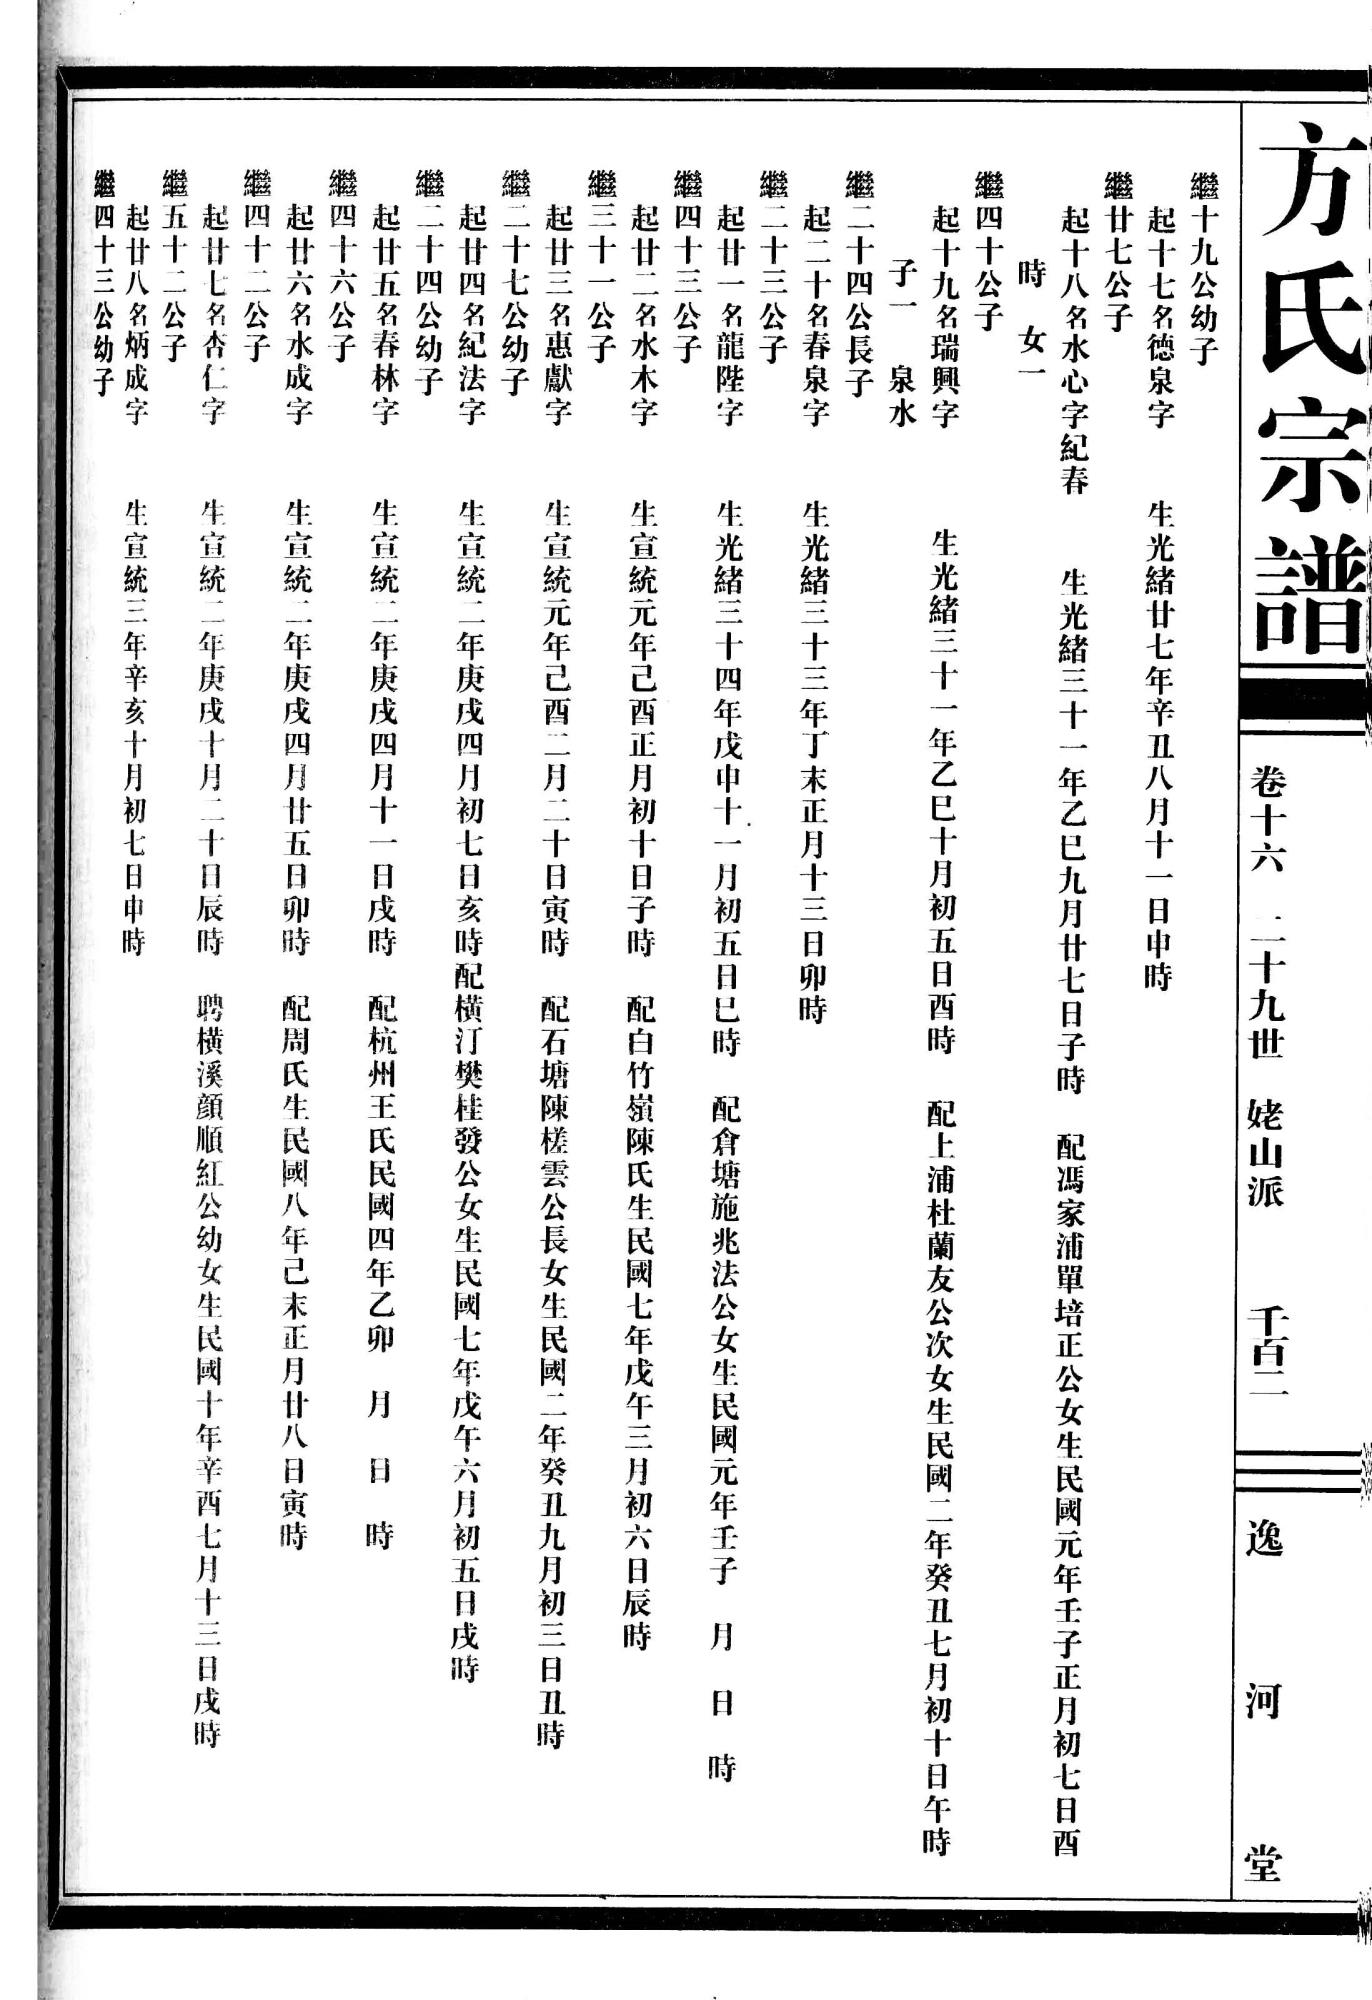 方氏宗譜
卷十六 二十九世 姥山派 千百二
逸河堂
繼十九公幼子
起十七名德泉字 生光緒廿七年辛丑八月十一日申時
繼廿七公子
起十八名水心字紀春 生光緒三十一年乙巳九月廿七日子時 配馮家浦單培正公女生民國元年壬子正月初七日酉
時 女一
繼四十公子
起十九名瑞興字 生光緒三十一年乙巳十月初五日酉時 配上浦杜蘭友公次女生民國二年癸丑七月初十日午時
子一 泉水
繼二十四公長子
起二十名春泉字 生光緒三十三年丁未正月十三日卯時
繼二十三公子
起廿一名龍陛字 生光緒三十四年戊申十一月初五日巳時 配倉塘施兆法公女生民國元年壬子 月 日 時
繼四十三公子
起廿二名水木字 生宣統元年己酉正月初十日子時 配白竹嶺陳氏生民國七年戊午三月初六日辰時
繼三十一公子
起廿三名惠獻字 生宣統元年己酉二月二十日寅時 配石塘陳槎雲公長女生民國二年癸丑九月初三日丑時
繼二十七公幼子
起廿四名紀法字 生宣統二年庚戌四月初七日亥時配橫汀樊桂發公女生民國七年戊午六月初五日戌時
繼二十四公幼子
起廿五名春林字 生宣統二年庚戌四月十一日戌時 配杭州王氏民國四年乙卯 月 日 時
繼四十六公子
起廿六名水成字 生宣統二年庚戌四月廿五日卯時 配周氏生民國八年己未正月廿八日寅時
繼四十二公子
起廿七名杏仁字 生宣統二年庚戌十月二十日辰時 聘橫溪顔順紅公幼女生民國十年辛酉七月十三日戌時
繼五十二公子
起廿八名炳成字 生宣統三年辛亥十月初七日申時
繼四十三公幼子